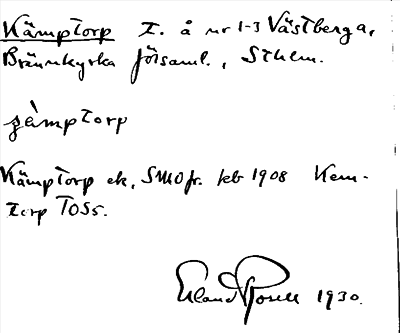 Kämptorp T. å nr 1-3 Västberga,
Brännkyrka församl., Sthlm.
Kämptorp ek, SMOfr. keb 1908 Kem-
torp TOSs.
Erland Rosell 1930.